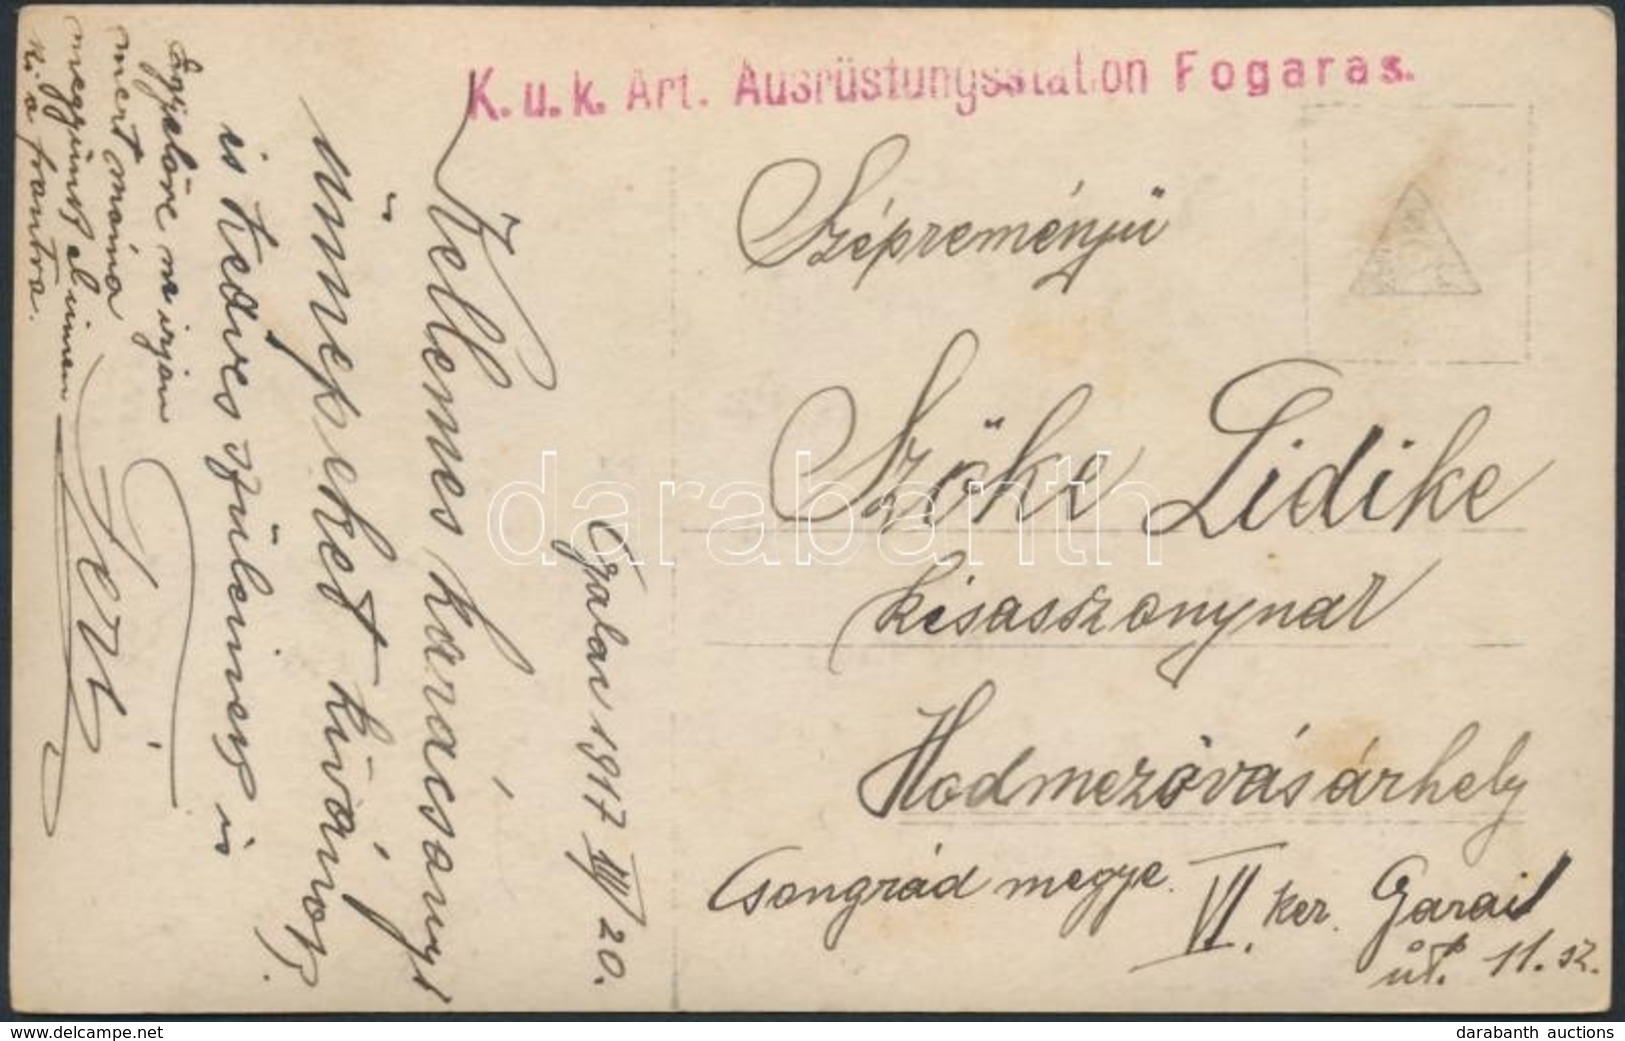 K. u. k. Art. Ausrüstungsstation Fogaras.
Szépreményű
Szőke Lidike
kisasszonynak
Hodmezővásárhely
Csongrád megye.
VI. ker. Garai
út. 11. sz.
Galac 1917 XII/20.
Kellemes karácsonyi
ünnepeket kívánok
is kedves szüleinek is
Jeni
Egyelőre ne irjon
mert máma
megyünk el innen
ki a frontra.
darabanth
darabanth auctions